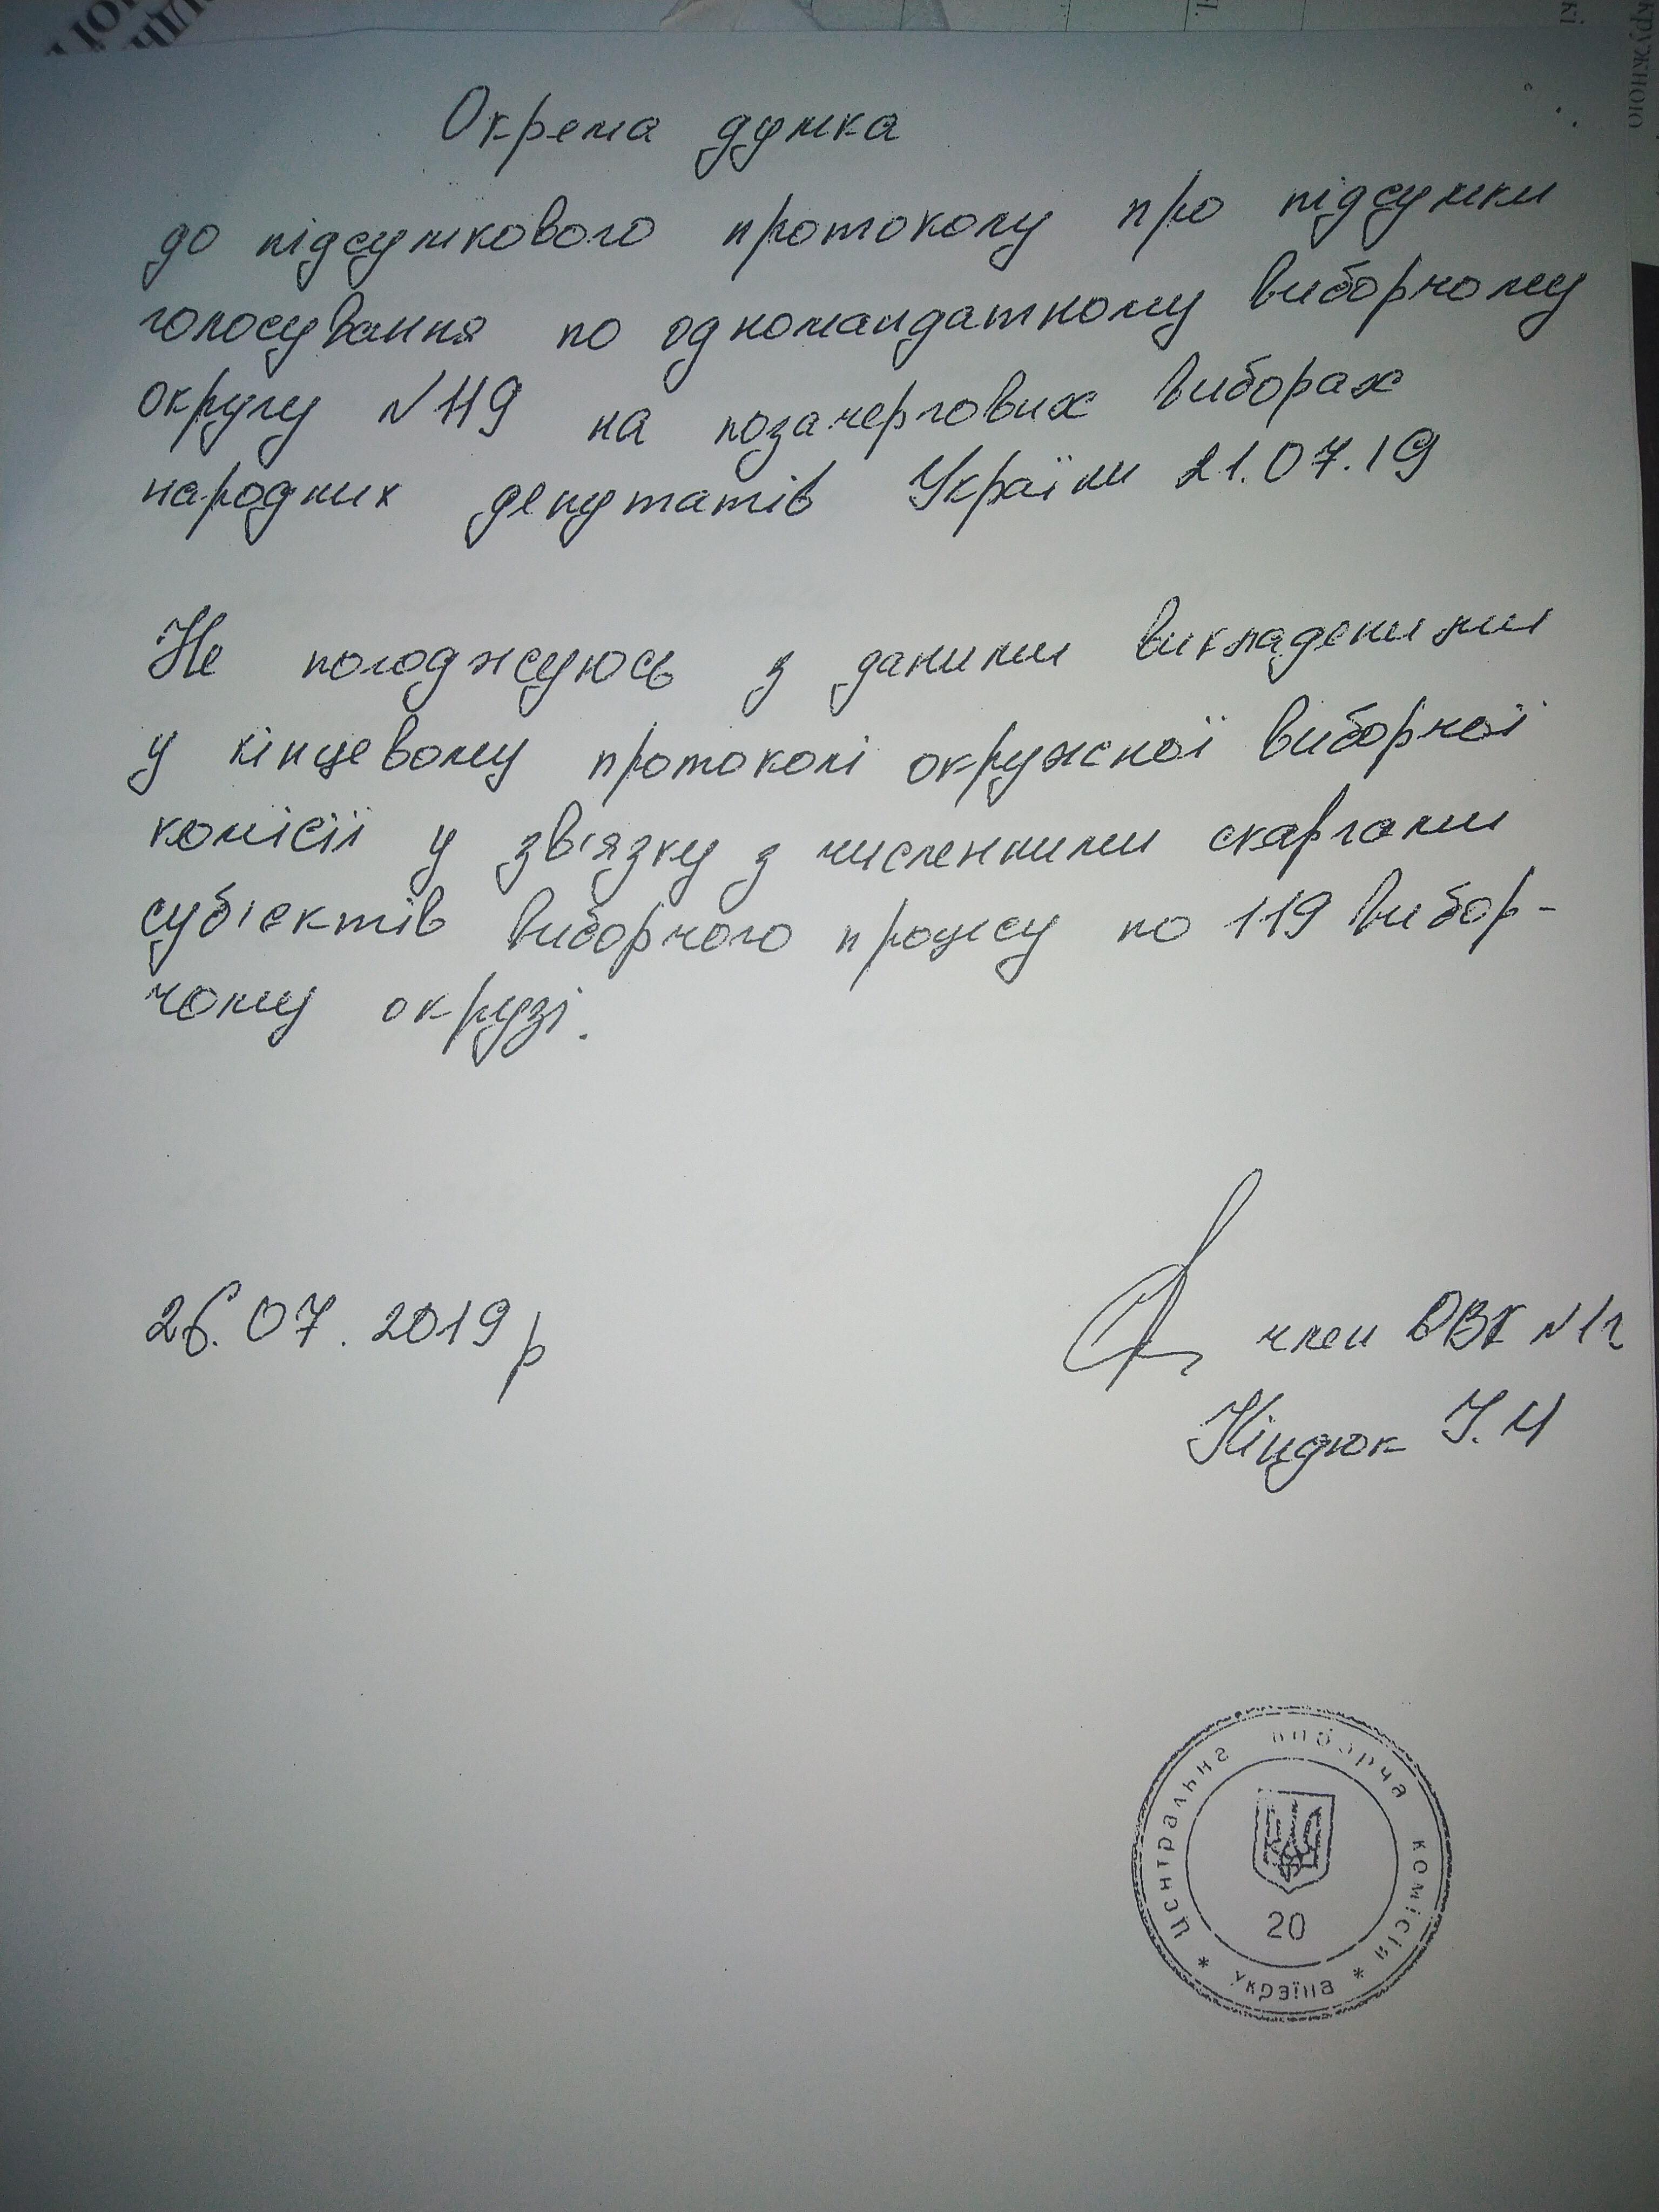 Окрема думка
до підсумкового протоколу про підсумки
голосування по одномандатному виборчому
округу №119 на позачергових виборах
народних депутатів України 21.07.19
Не погоджуюсь з даними викладеними
у кінцевому протоколі окружної виборчої
комісії у зв'язку з численними скаргами
суб'єктів виборчого процесу по 119 вибор-
чому окрузі.
26.07.2019р
член ОВК
Кіндюк
Центральна виборча комісія
20
* Україна *
кружною
кі